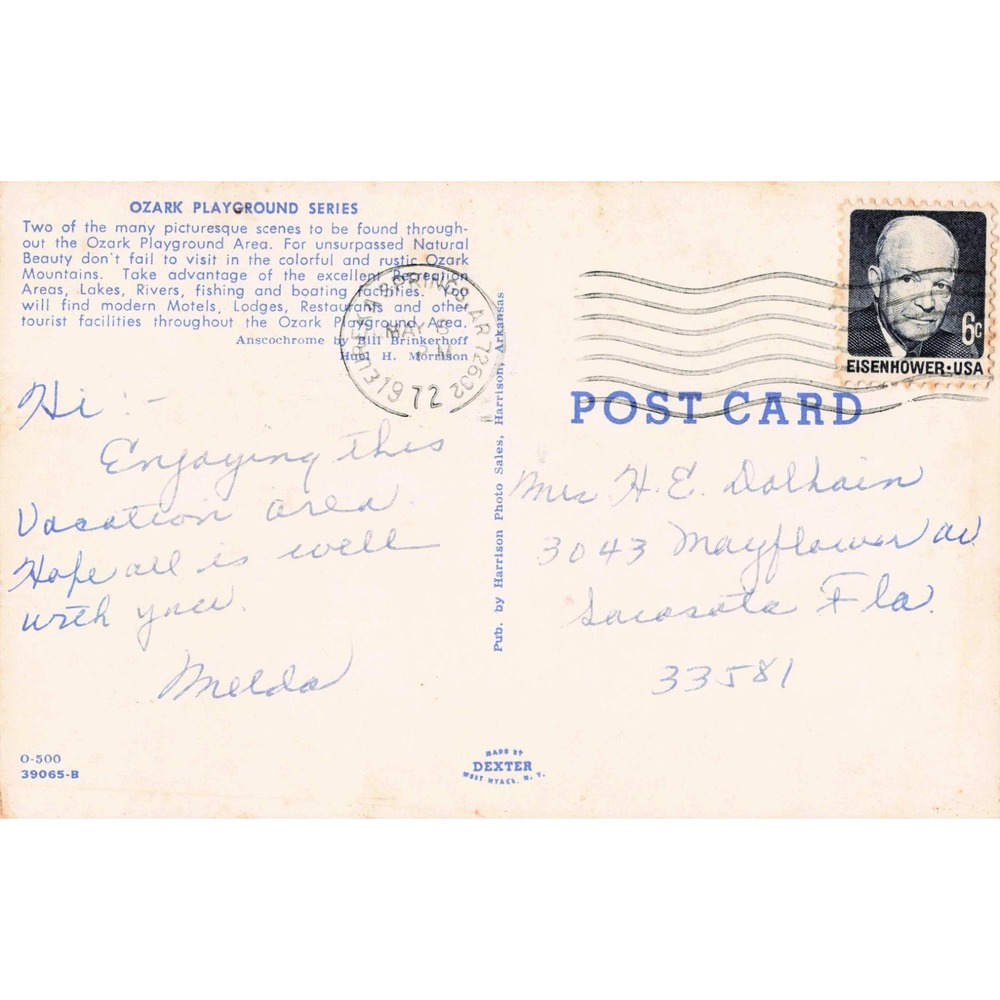 OZARK PLAYGROUND SERIES
Two of the many picturesque scenes to be found through-
out the Ozark Playground Area. For unsurpassed Natural
Beauty don't fail to visit in the colorful and rustic Ozark
Mountains. Take advantage of the excellent Recreation
Areas, Lakes, Rivers, fishing and boating facilities. You
will find modern Motels, Lodges, Restaurants and other
tourist facilities throughout the Ozark Playground Area.
Anscochrome by Bill Brinkerhoff
Hubert H. Morrison
EUREKA SPRINGS, AR 72632
MAY 5
PM
1972
Hi :-
Enjoying this
Vacation area.
Hope all is well
with you.
Melda
O-500
39065-B
Pub. by Harrison Photo Sales, Harrison, Arkansas
MADE BY
DEXTER
WEST NYACK, N. Y.
6c
EISENHOWER·USA
POST CARD
Mrs H. E. Dolhain
3043 Mayflower av
Sarasota Fla.
33581